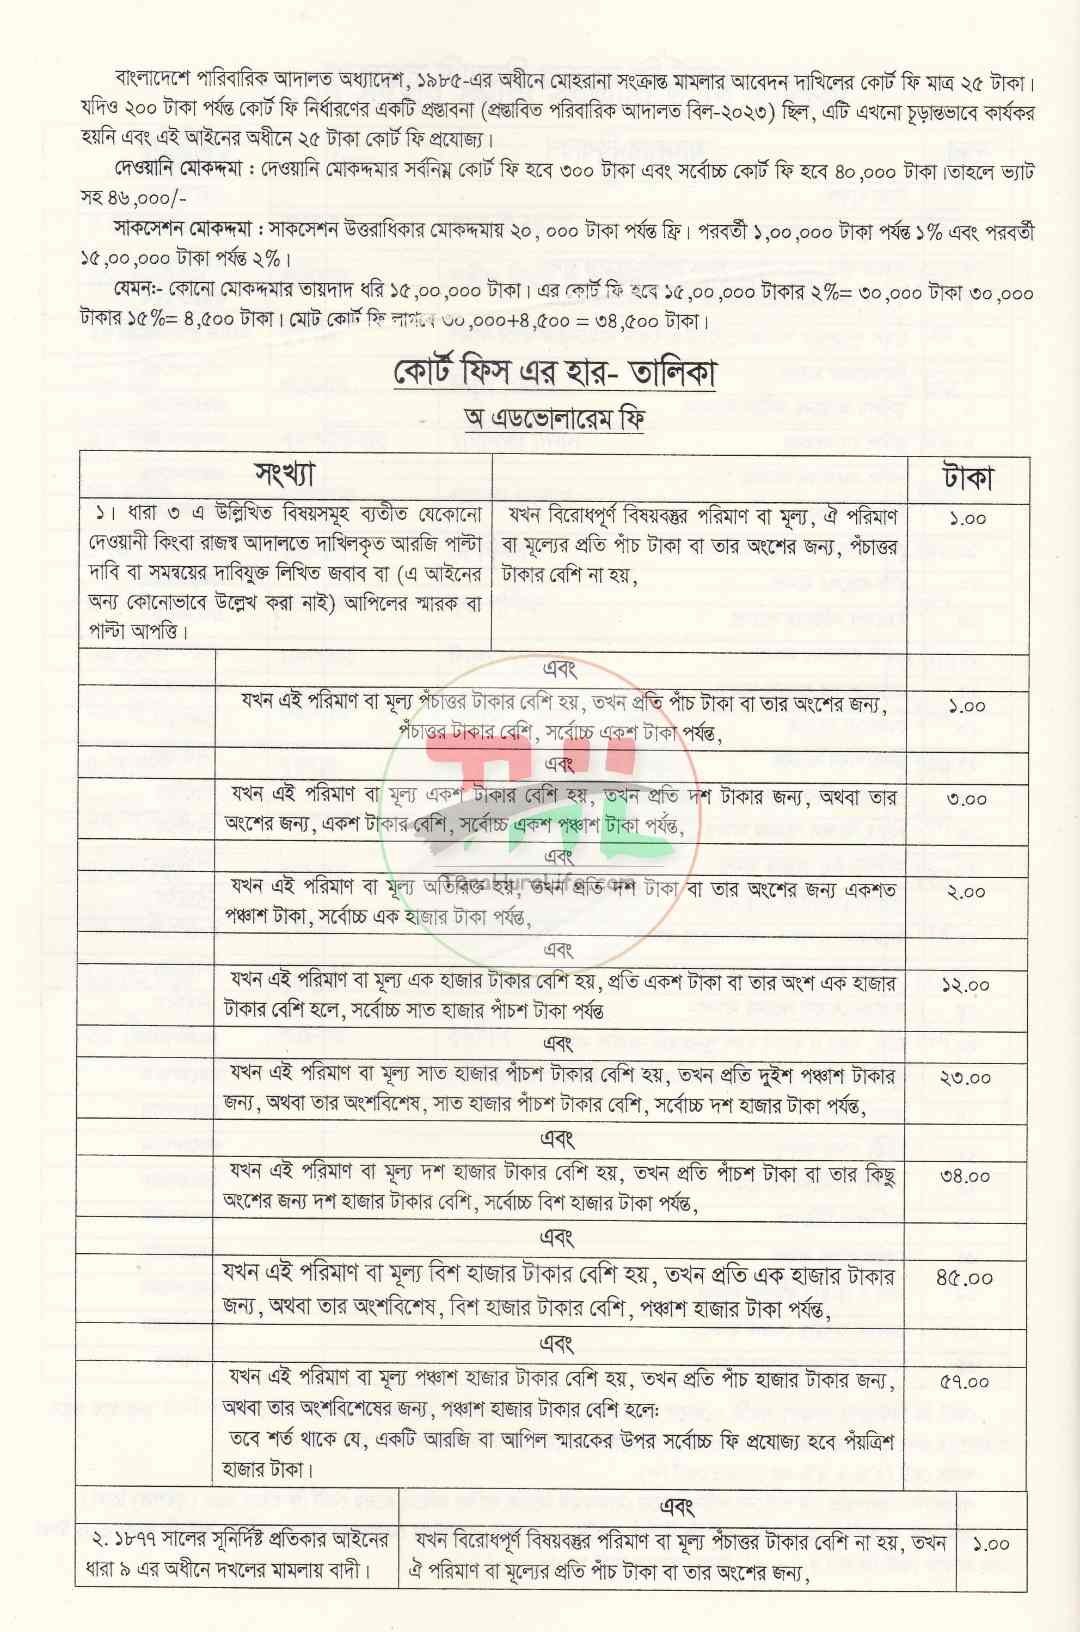 বাংলাদেশে পারিবারিক আদালত অধ্যাদেশ, ১৯৮৫-এর অধীনে মোহরানা সংক্রান্ত মামলার আবেদন দাখিলের কোর্ট ফি মাত্র ২৫ টাকা।
যদিও ২০০ টাকা পর্যন্ত কোর্ট ফি নির্ধারণের একটি প্রস্তাবনা (প্রস্তাবিত পরিবারিক আদালত বিল-২০২৩) ছিল, এটি এখনো চূড়ান্তভাবে কার্যকর
হয়নি এবং এই আইনের অধীনে ২৫ টাকা কোর্ট ফি প্রযোজ্য।
দেওয়ানি মোকদ্দমা : দেওয়ানি মোকদ্দমার সর্বনিম্ন কোর্ট ফি হবে ৩০০ টাকা এবং সর্বোচ্চ কোর্ট ফি হবে ৪০,০০০ টাকা।তাহলে ভ্যাট
সহ ৪৬,০০০/-
সাকসেশন মোকদ্দমা : সাকসেশন উত্তরাধিকার মোকদ্দমায় ২০, ০০০ টাকা পর্যন্ত ফ্রি। পরবর্তী ১,০০,০০০ টাকা পর্যন্ত ১% এবং পরবর্তী
১৫,০০,০০০ টাকা পর্যন্ত ২%।
যেমন:- কোনো মোকদ্দমার তায়দাদ ধরি ১৫,০০,০০০ টাকা। এর কোর্ট ফি হবে ১৫,০০,০০০ টাকার ২%= ৩০,০০০ টাকা ৩০,০০০
টাকার ১৫%= ৪,৫০০ টাকা। মোট কোর্ট ফি লাগবে ৩০,০০০+৪,৫০০ = ৩৪,৫০০ টাকা।
কোর্ট ফিস এর হার- তালিকা
অ এডভোলারেম ফি
সংখ্যা টাকা
১। ধারা ৩ এ উল্লিখিত বিষয়সমূহ ব্যতীত যেকোনো
দেওয়ানী কিংবা রাজস্ব আদালতে দাখিলকৃত আরজি পাল্টা
দাবি বা সমন্বয়ের দাবিযুক্ত লিখিত জবাব বা (এ আইনের
অন্য কোনোভাবে উল্লেখ করা নাই) আপিলের স্মারক বা
পাল্টা আপত্তি।
যখন বিরোধপূর্ণ বিষয়বস্তুর পরিমাণ বা মূল্য, ঐ পরিমাণ
বা মূল্যের প্রতি পাঁচ টাকা বা তার অংশের জন্য, পঁচাত্তর
টাকার বেশি না হয়,
১.০০
এবং
যখন এই পরিমাণ বা মূল্য পঁচাত্তর টাকার বেশি হয়, তখন প্রতি পাঁচ টাকা বা তার অংশের জন্য,
পঁচাত্তর টাকার বেশি, সর্বোচ্চ একশ টাকা পর্যন্ত,
১.০০
এবং
যখন এই পরিমাণ বা মূল্য একশ টাকার বেশি হয়, তখন প্রতি দশ টাকার জন্য, অথবা তার
অংশের জন্য, একশ টাকার বেশি, সর্বোচ্চ একশ পঞ্চাশ টাকা পর্যন্ত,
৩.০০
এবং
যখন এই পরিমাণ বা মূল্য অতিরিক্ত হয়, তখন প্রতি দশ টাকা বা তার অংশের জন্য একশত
পঞ্চাশ টাকা, সর্বোচ্চ এক হাজার টাকা পর্যন্ত,
২.০০
এবং
যখন এই পরিমাণ বা মূল্য এক হাজার টাকার বেশি হয়, প্রতি একশ টাকা বা তার অংশ এক হাজার
টাকার বেশি হলে, সর্বোচ্চ সাত হাজার পাঁচশ টাকা পর্যন্ত
১২.০০
এবং
যখন এই পরিমাণ বা মূল্য সাত হাজার পাঁচশ টাকার বেশি হয়, তখন প্রতি দুইশ পঞ্চাশ টাকার
জন্য, অথবা তার অংশবিশেষ, সাত হাজার পাঁচশ টাকার বেশি, সর্বোচ্চ দশ হাজার টাকা পর্যন্ত,
২৩.০০
এবং
যখন এই পরিমাণ বা মূল্য দশ হাজার টাকার বেশি হয়, তখন প্রতি পাঁচশ টাকা বা তার কিছু
অংশের জন্য দশ হাজার টাকার বেশি, সর্বোচ্চ বিশ হাজার টাকা পর্যন্ত,
৩৪.০০
এবং
যখন এই পরিমাণ বা মূল্য বিশ হাজার টাকার বেশি হয়, তখন প্রতি এক হাজার টাকার
জন্য, অথবা তার অংশবিশেষ, বিশ হাজার টাকার বেশি, পঞ্চাশ হাজার টাকা পর্যন্ত,
৪৫.০০
এবং
যখন এই পরিমাণ বা মূল্য পঞ্চাশ হাজার টাকার বেশি হয়, তখন প্রতি পাঁচ হাজার টাকার জন্য,
অথবা তার অংশবিশেষের জন্য, পঞ্চাশ হাজার টাকার বেশি হলে:
তবে শর্ত থাকে যে, একটি আরজি বা আপিল স্মারকের উপর সর্বোচ্চ ফি প্রযোজ্য হবে পঁয়ত্রিশ
হাজার টাকা।
৫৭.০০
এবং
২. ১৮৭৭ সালের সুনির্দিষ্ট প্রতিকার আইনের
ধারা ৯ এর অধীনে দখলের মামলায় বাদী।
যখন বিরোধপূর্ণ বিষয়বস্তুর পরিমাণ বা মূল্য পঁচাত্তর টাকার বেশি না হয়, তখন
ঐ পরিমাণ বা মূল্যের প্রতি পাঁচ টাকা বা তার অংশের জন্য,
১.০০